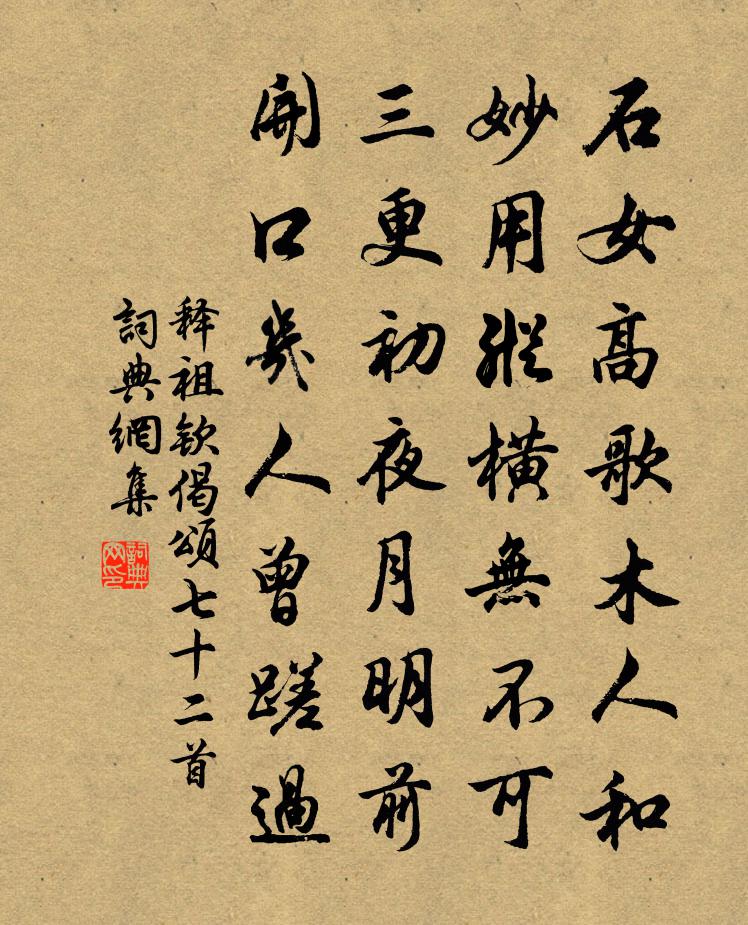 石女高歌木人和
妙用縱橫無不可
三更初夜月明前
開口幾人曾蹉過
释祖欽偈頌七十二首
詞典網集
詞典網印